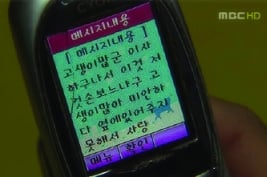 MBC HD
메시지내용
[ 메시지내용 ]
고생이많군 이사
하구나서 이것 저
것손보느라구 고
생이많아 미안하
다 옆에있어주지
못해서 사랑
메뉴 확인